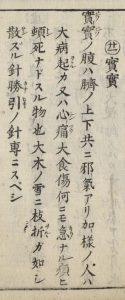 卄五 實實
實實ノ腹ハ臍ノ上下共ニ邪氣アリ加樣ノ人ハ
大病起カ又ハ心痛大食傷何ニモ急ナル煩ヒ
頓死ナドスル物也大木ノ雪ニ枝折カ如シ
散ズル針勝引ノ針專ニスベシ